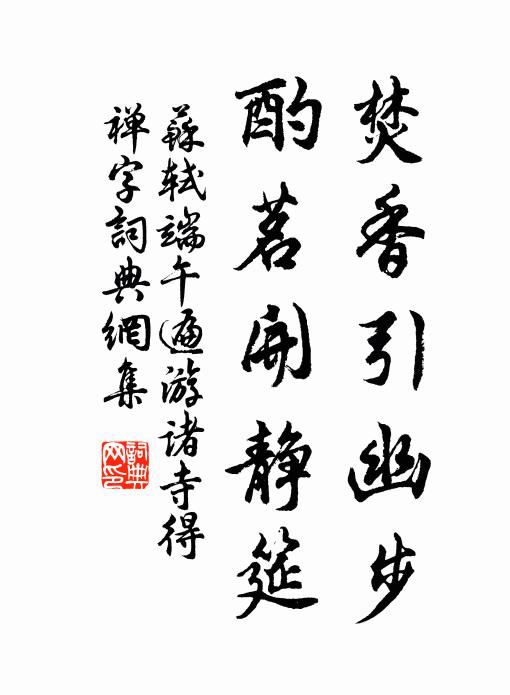 焚香引幽步
酌茗開静筵
蘇軾端午遍游诸寺得
禅字詞典網集
詞典
网印